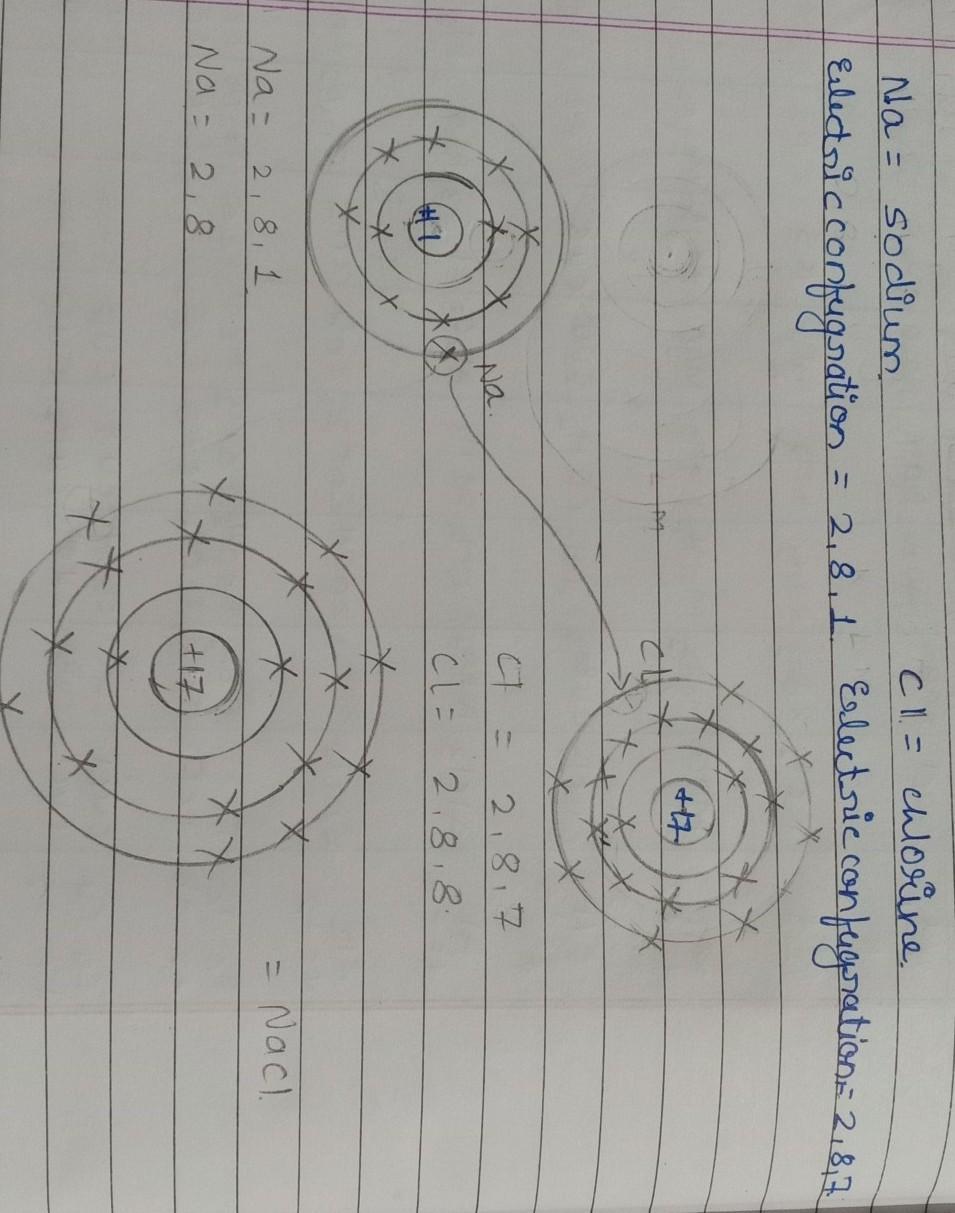 Na = Sodium. Cl. = chlorine.
Eelectric confugration = 2,8,1 Eelectric confugration = 2,8,7
M
+17
Cl
Na.
+11
Cl = 2,8,7
Cl = 2,8,8.
Na = 2,8,1
Na = 2,8
+17
= NaCl.